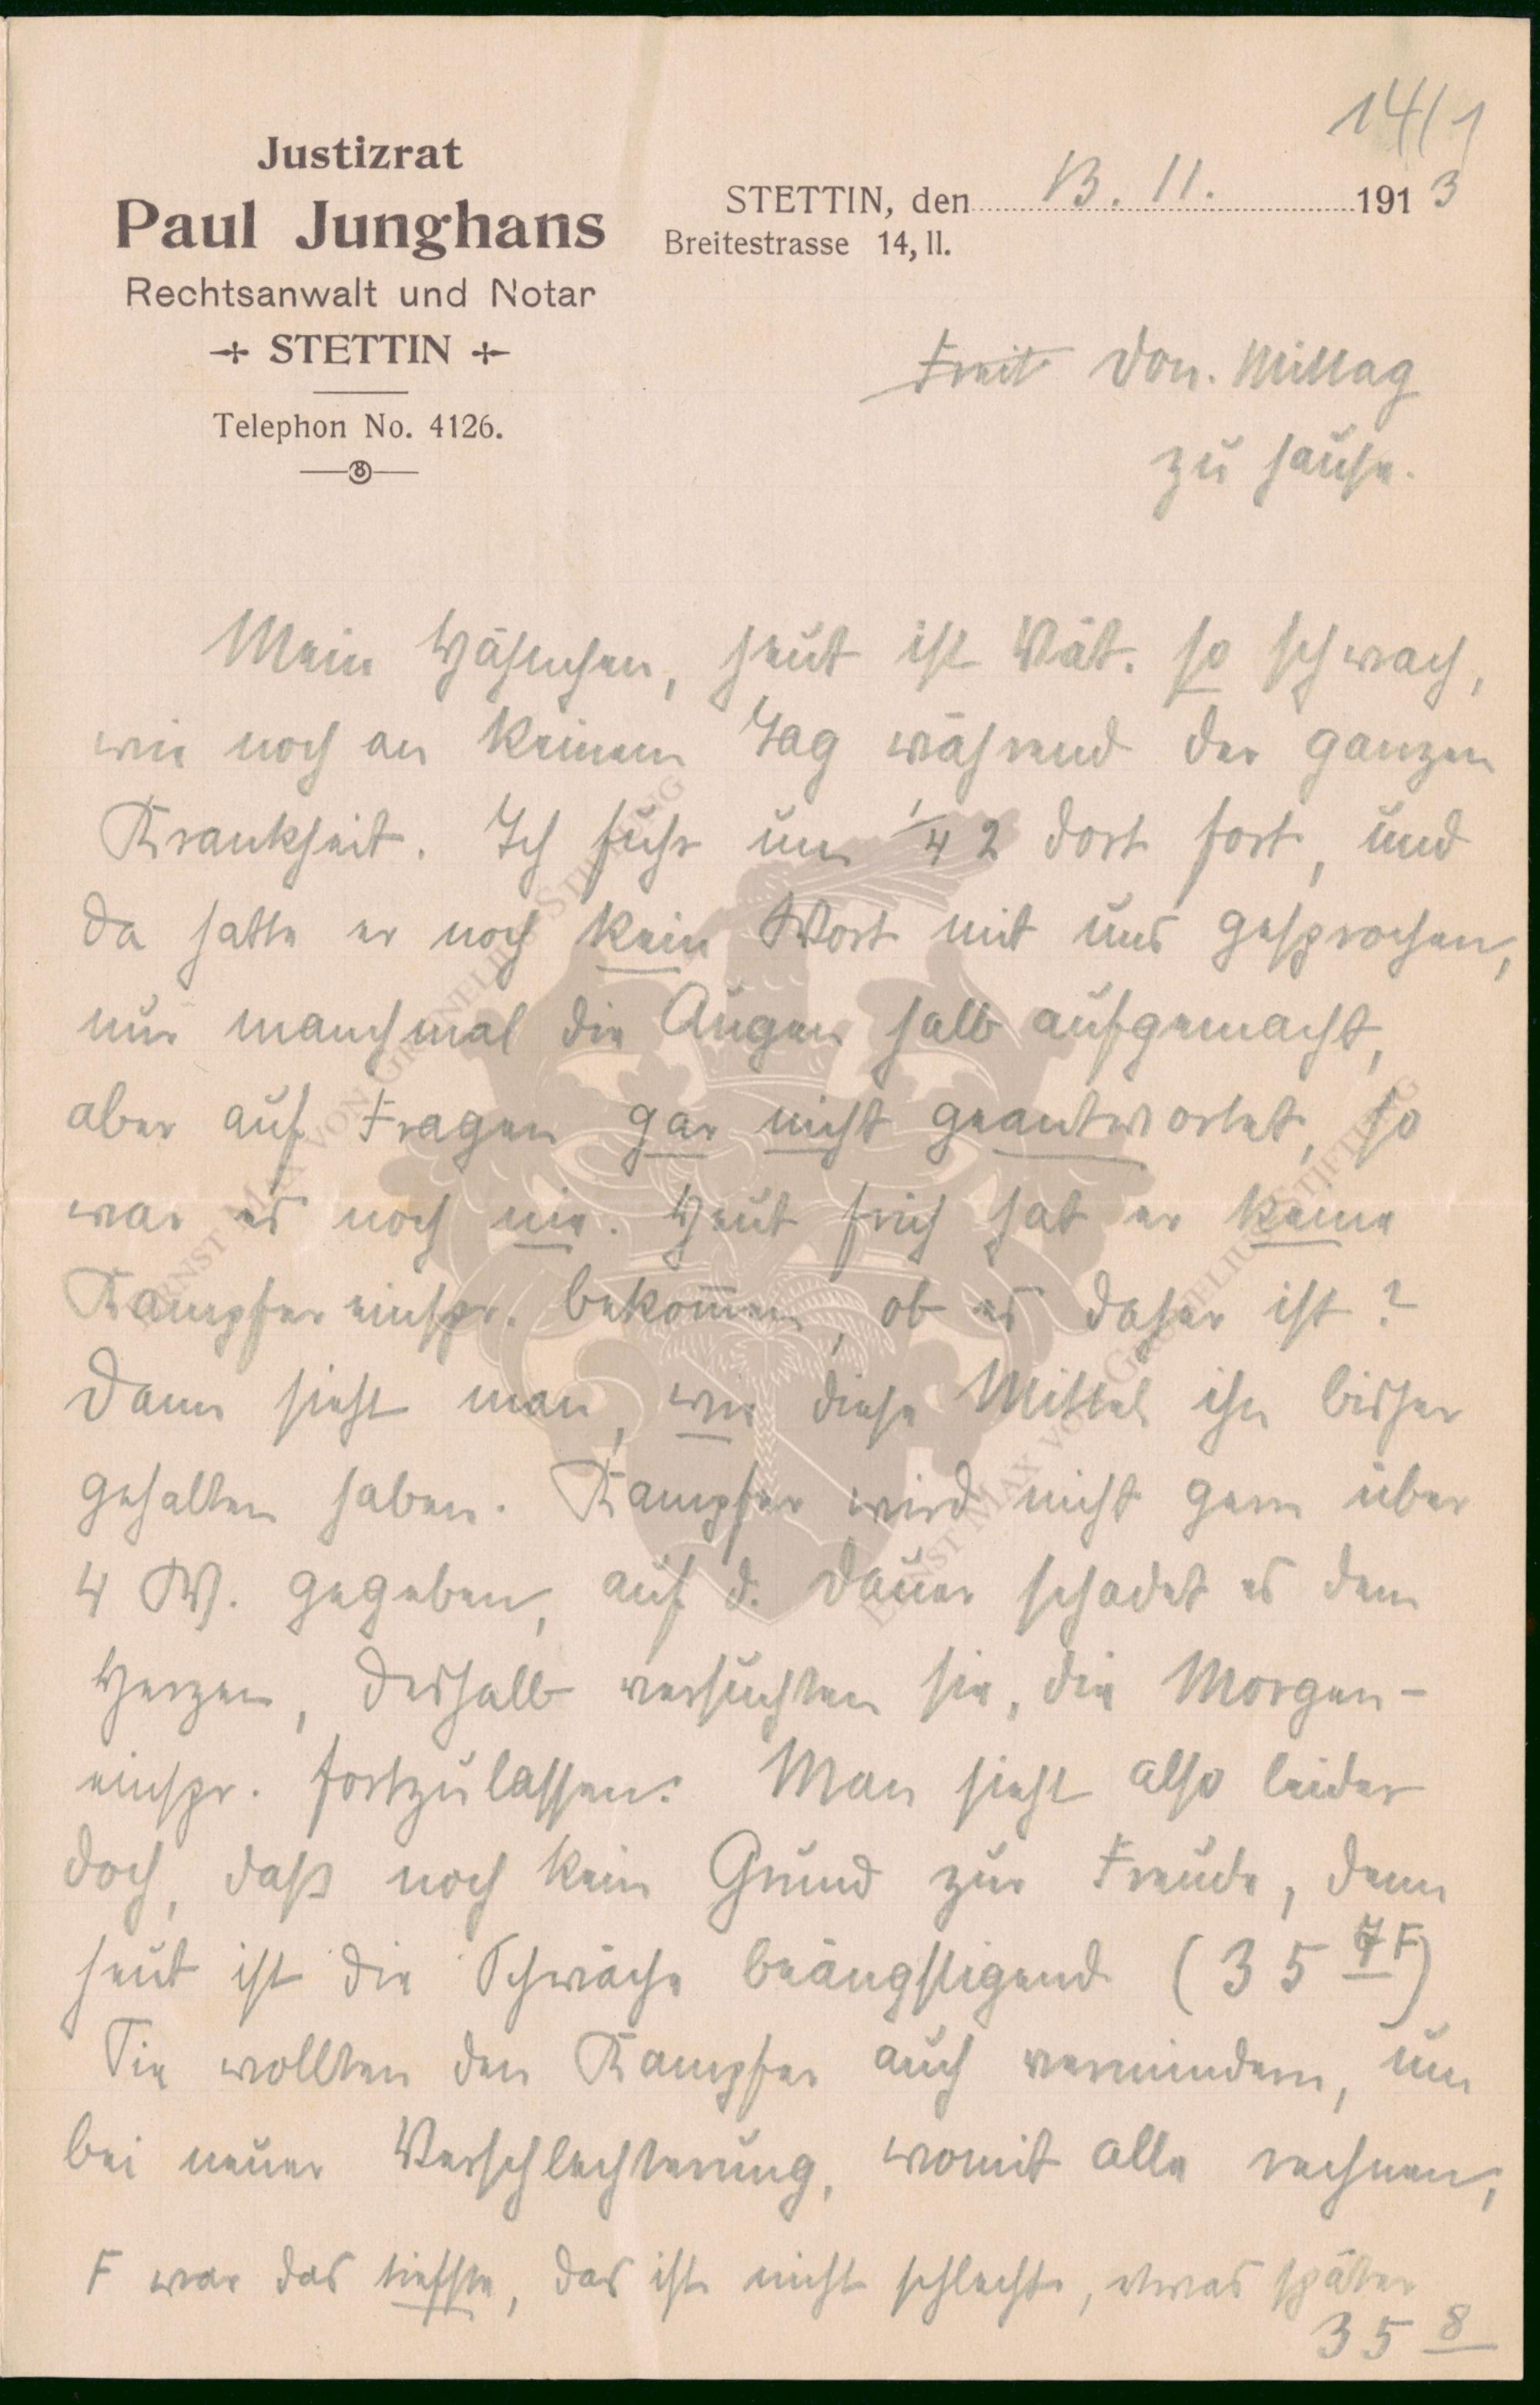 14/1
Justizrat
Paul Junghans
Rechtsanwalt und Notar
STETTIN
Telephon No. 4126.
STETTIN, den 13. 11. 1913
Breitestrasse 14, II.
Freit Don. Mittag
zu Hause.
Mein Hähnchen, heut ist Vät. so schwach,
wie noch an keinem Tag während der ganzen
Krankheit. Ich fuhr um 1/4 2 dort fort, und
da hatte er noch kein Wort mit uns gesprochen,
nur manchmal die Augen halb aufgemacht,
aber auf Fragen gar nicht geantwortet, so
war es noch nie. Heut früh hat er keine
Kampfereinspr. bekommen, ob es daher ist?
Dann sieht man, wie diese Mittel ihn bisher
gehalten haben. Kampfer wird nicht gern über
4 W. gegeben, auf d. Dauer schadet es dem
Herzen, deshalb versuchten sie, die Morgen-
einspr. fortzulassen. Man sieht also leider
doch, daß noch kein Grund zur Freude, denn
heut ist die Schwäche beängstigend (35 7 F)
Sie wollten den Kampfer auch vermindern, um
bei neuer Verschlechterung, womit alle rechnen,
F war das tiefste, das ist nicht schlecht, etwas später
35 8
ERNST MAX VON GRUNELIUS STIFTUNG
ERNST MAX VON GRUNELIUS STIFTUNG